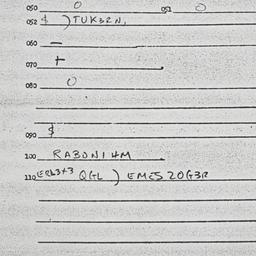 050 0 051 0
052 $ )TUK32N,
060 —
070 +
080 0
090 $
100 RABONI HM
110 QGTL ) EMES 20G3R